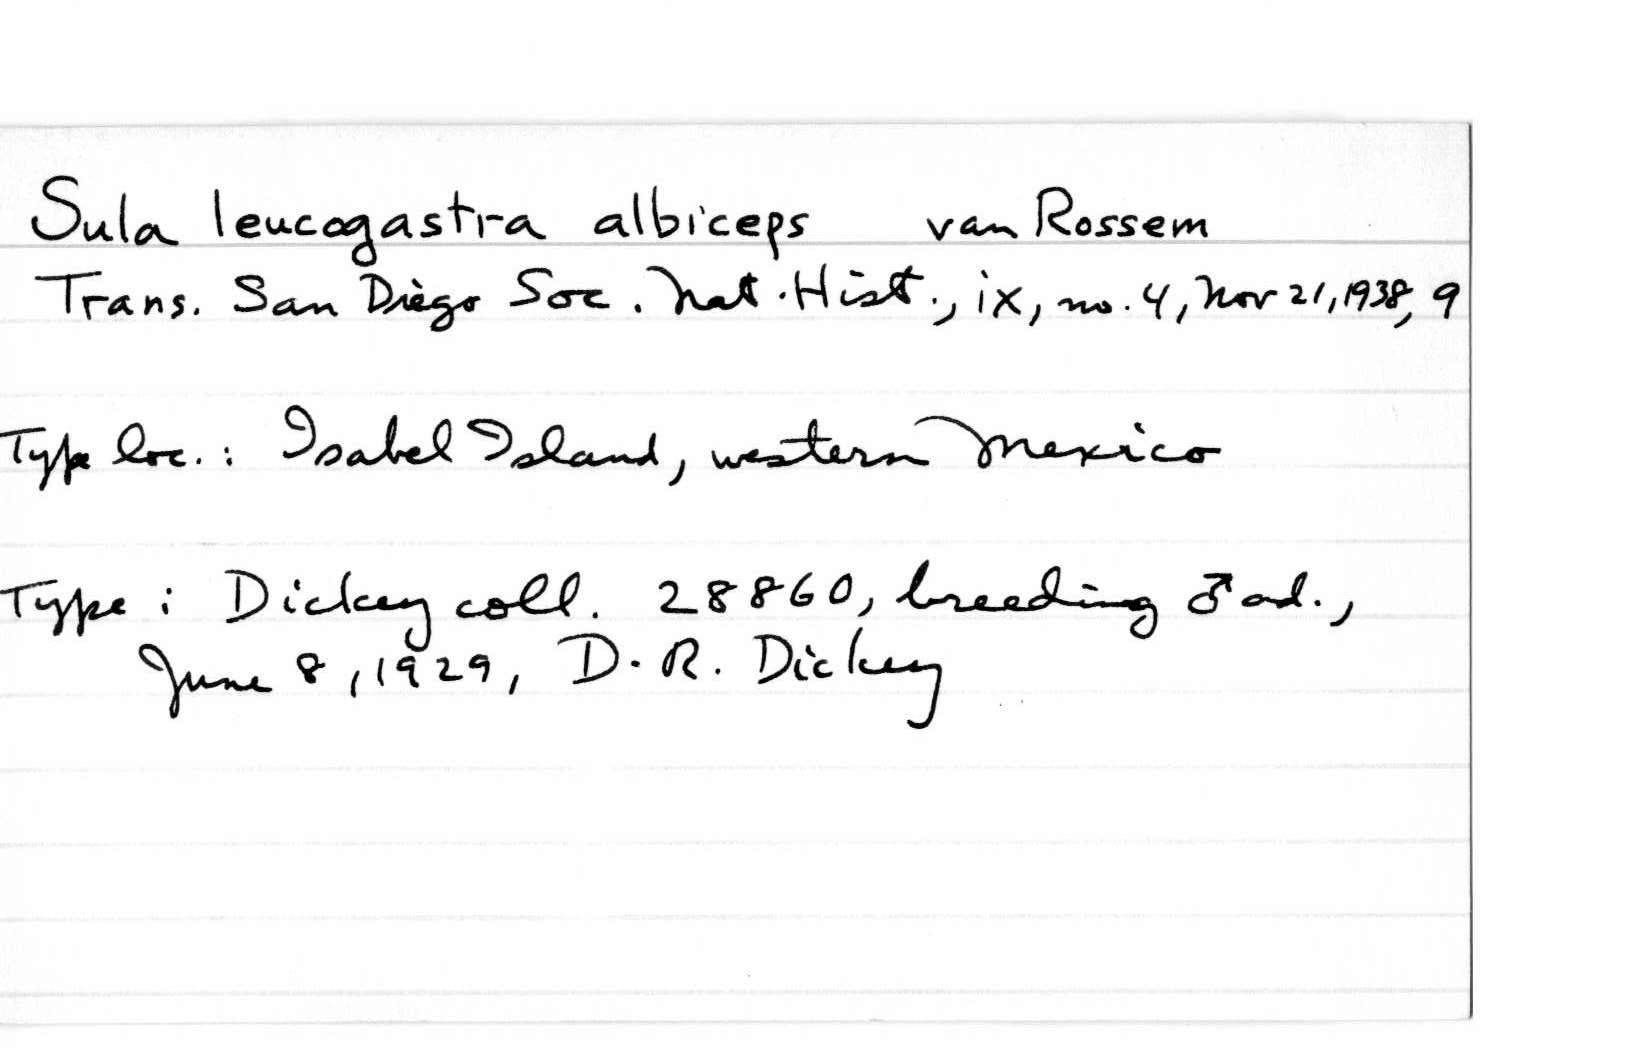 Sula leucogastra albiceps van Rossem
Trans. San Diego Soc. Nat. Hist., ix, no. 4, Nov 21, 1938, 9
Type loc.: Isabel Island, western Mexico
Type: Dickey coll. 28860, breeding ♂ ad.,
June 8, 1929, D. R. Dickey